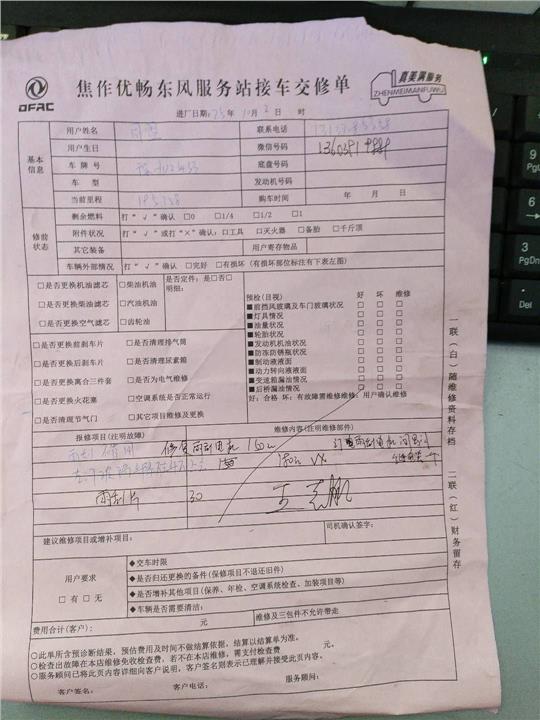 DFAC
焦作优畅东风服务站接车交修单
真美满服务
ZHENMEIMANFUWU
进厂日期: 年 10 月 2 日 时
基本信息
用户姓名 联系电话
用户生日 微信号码
车 牌 号 底盘号码
车 型 发动机号码
当前里程 195788 购车时间 年 月 日
修前状态
剩余燃料 打“√”确认 □0 □1/4 □1/2 □1
附件状况 打“√”或打“×”确认：□工具 □灭火器 □备胎 □千斤顶
其它装备 用户寄存物品
车辆外部情况 打“√”确认 □完好 □有损坏（有损坏部位标注有下表左图）
□是否更换机油滤芯 □柴油机油
□是否更换柴油滤芯 □汽油机油
□是否更换空气滤芯 □齿轮油
是否定件：是□否□
明细:
□是否更换前刹车片 □是否清理排气筒
□是否更换后刹车片 □是否清理尿素箱
□是否更换离合三件套 □是否为电气维修
□是否更换火花塞 □空调系统是否正常运行
□是否清理节气门 □其它项目维修及更换
预检(目视) 好 坏 维修
■前挡风玻璃及车门玻璃状况 □ □ □
■灯具情况 □ □ □
■油量状况 □ □ □
■轮胎状况 □ □ □
■发动机机油状况 □ □ □
■防冻防锈瓶状况 □ □ □
■制动液液面 □ □ □
■动力转向液液面 □ □ □
■变速箱漏油情况 □ □ □
■后桥漏油情况 □ □ □
好：合格 坏：有故障需维修维修：用户确认维修
报修项目(注明故障) 维修内容(注明维修部件)
雨刮片 30
建议维修项目或增补项目: 司机确认签字:
用户要求
□ 有 □ 无
◆交车时限
◆是否归还更换的备件(保修项目不退还旧件)
◆是否增补其他项目(保养、年检、空调系统检查、加装项目等)
◆车辆是否需要清洁:
费用合计(客户): 元 维修及三包件不允许带走
○此单所含预诊断结果，预估费用及时间不做结算依据，结算以结算单为准。
○检查出故障在本店维修免收检查费，若不在本店维修，需支付检查费 元。
○服务顾问已将此页内容详细向客户说明，客户签名则表示已理解并接受此页内容。
客户签名: 客户电话: 服务顾问:
一联（白）随维修资料存档
二联（红）财务留存
9
PgU
3
PgDn
Del